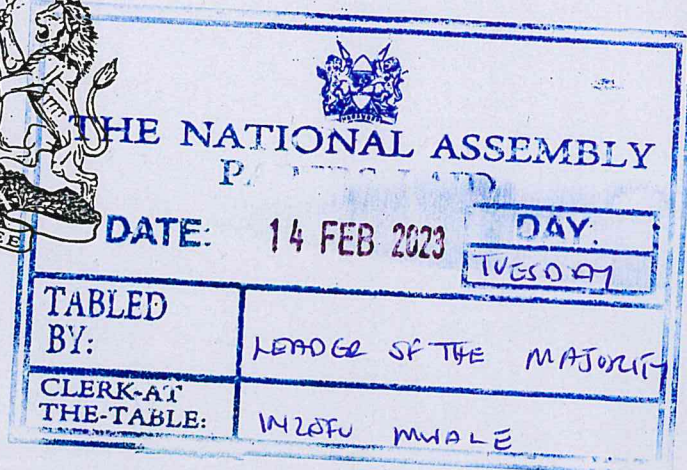 THE NATIONAL ASSEMBLY
PAPERS LAID
DATE: 14 FEB 2023 DAY.
TUESDAY
TABLED
BY: LEADER OF THE MAJORITY
CLERK-AT
THE-TABLE: INZOFU MWALE